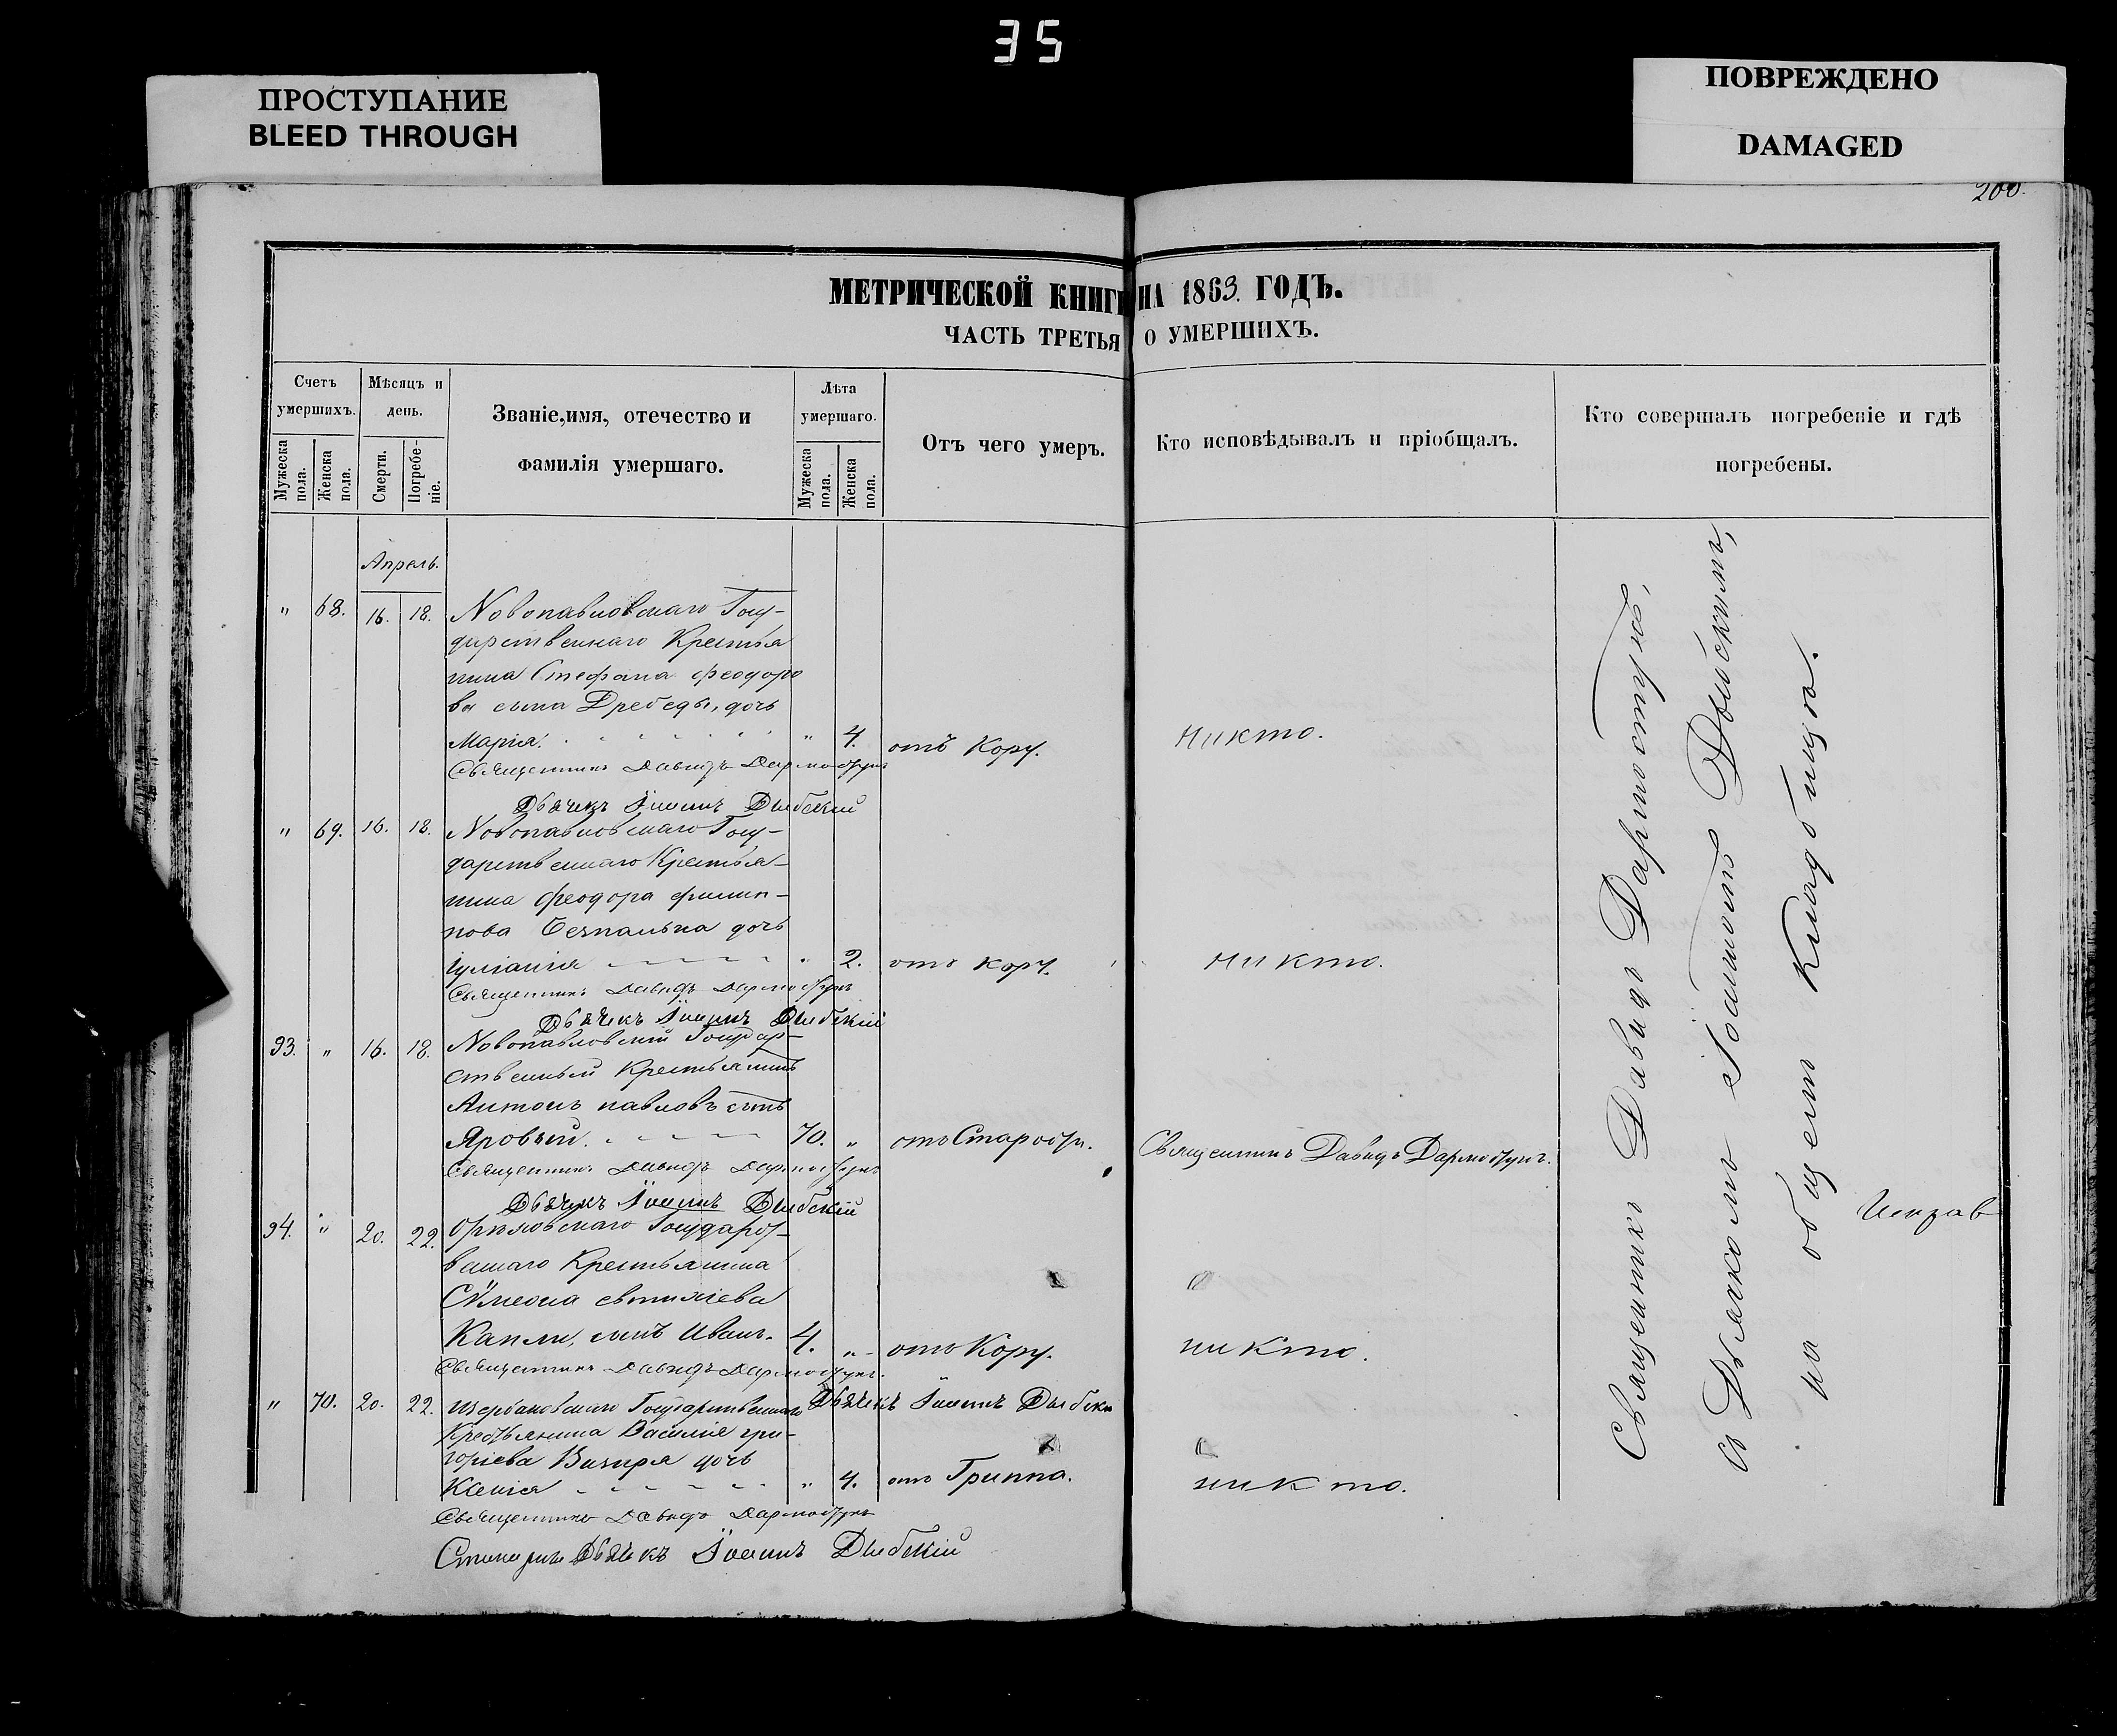 35
ПРОСТУПАНИЕ
BLEED THROUGH
ПОВРЕЖДЕНО
DAMAGED
200
МЕТРИЧЕСКОЙ КНИГИ НА 1863. ГОДЪ.
ЧАСТЬ ТРЕТЬЯ О УМЕРШИХЪ.
Счетъ умершихъ.
Мужеска пола.
Женска пола.
Мѣсяцъ и день.
Смерти.
Погребе-
ніе.
Званіе,имя, отечество и
фамилія умершаго.
Лѣта умершаго.
Мужеска пола.
Женска пола.
Отъ чего умеръ.
Кто исповѣдывалъ и пріобщалъ.
Кто совершалъ погребеніе и гдѣ
погребены.
Апрель.
" 68. 16. 18. Новопавловскаго Госу-
дарственнаго Крестья
нина Стефана Феодоро
ва сына Дребеды, дочь
Марія. " 4. отъ Кору. никто.
Священникъ Давидъ Дармостукъ
Дьячекъ Іоаннъ Дыбскій
" 69. 16. 18. Новопавловскаго Госу-
дарственнаго Крестья-
нина Феодора Филип-
пова Безпалька дочь
Іуліанія " 2. отъ кору. никто.
Священникъ Давидъ Дармостукъ
Дьячекъ Іоаннъ Дыбскій
93. " 16. 18. Новопавловскій Государ-
ственный Крестьянинъ
Антонъ павловъ сынъ
Яровый. 70. " отъ Старости. Священникъ Давидъ Дармостукъ.
Священникъ Давидъ Дармостукъ
Дьячекъ Іоаннъ Дыбскій
94. " 20. 22. Государст-
веннаго Крестьянина
Сѵмеона евтихіева
Капли, сынъ Иванъ. 4. " отъ Кору. никто.
Священникъ Давидъ Дармостукъ.
Дьячекъ Іоаннъ Дыбскі
" 70. 20. 22. Щербановскаго Государственнаго
Крестьянина Василія гри-
горіева Визиря дочь
Ксенія " 4. отъ Гриппа. никто.
Священникъ Давидъ Дармостукъ
Дьячекъ Іоаннъ Дыбскій
Священникъ Давидъ Дармостукъ,
съ Дьячкомъ Іоанномъ Дыбскимъ,
на общемъ Кладбищѣ.